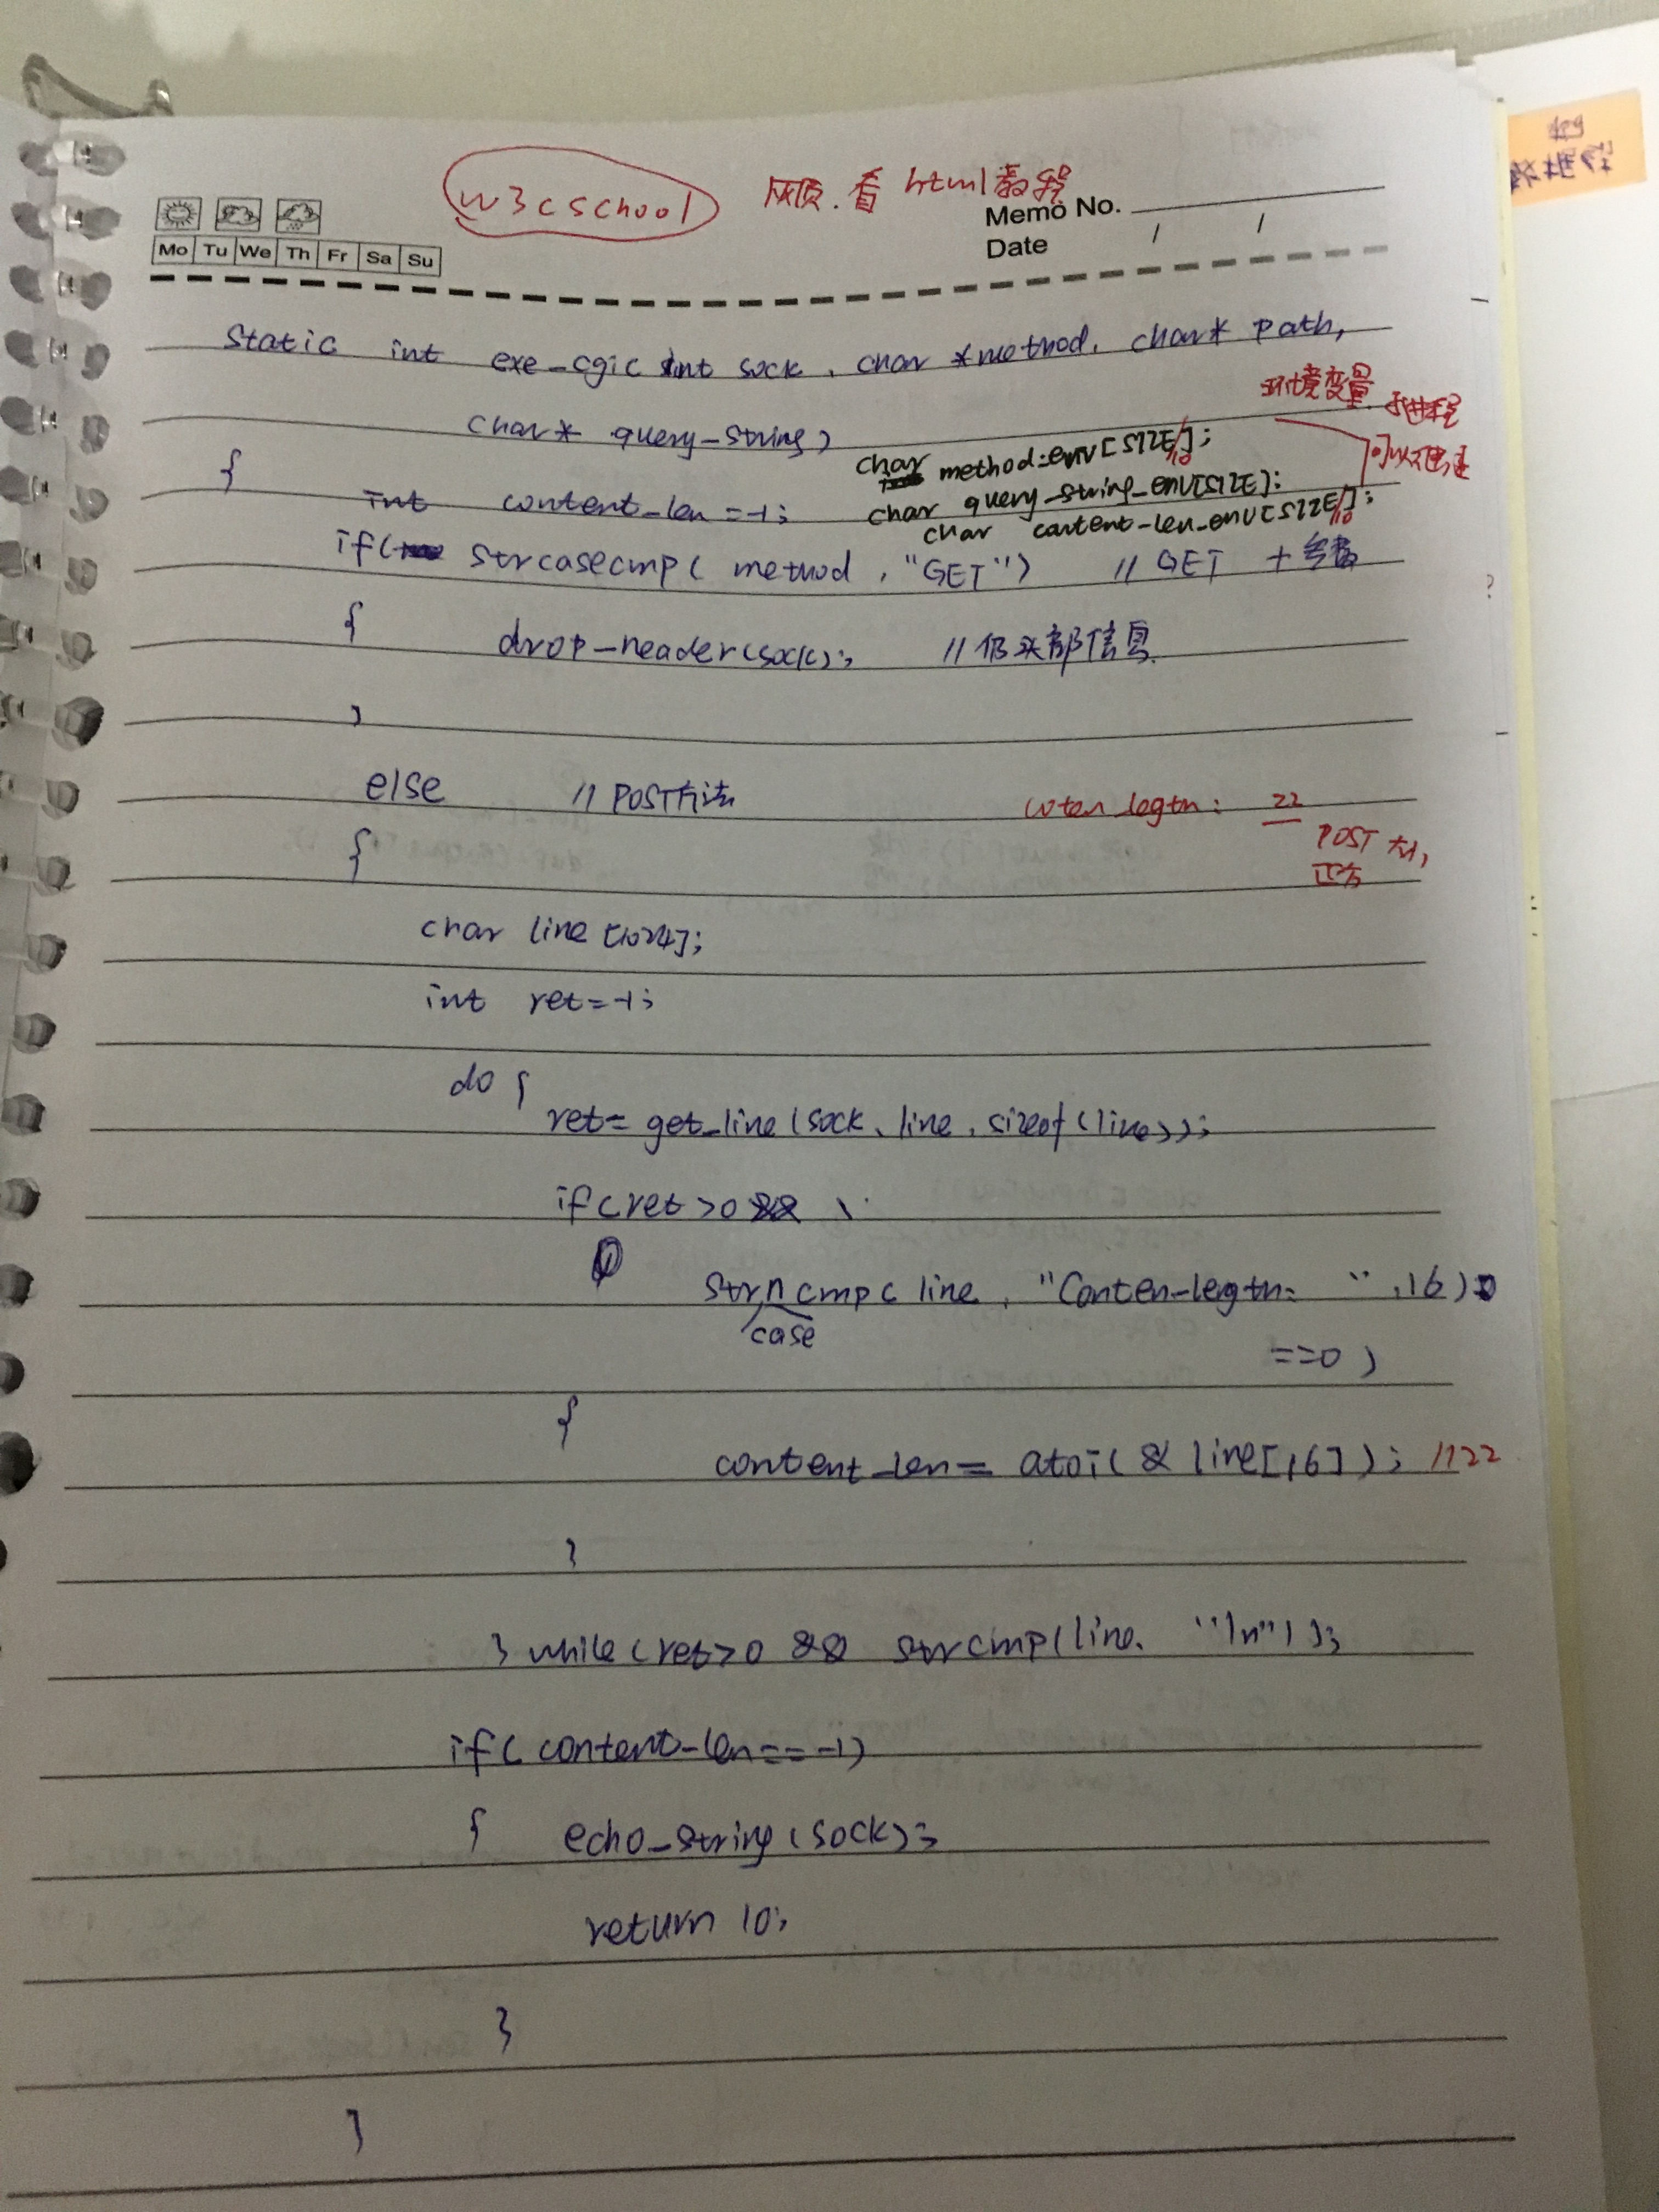 w3cschool 网页.看 html教程
Memo No.
Date / /
Mo Tu We Th Fr Sa Su
static int exe_cgi( int sock, char *method, char* path,
char* query_string)
环境变量 子进程
可以继承
{
char method_env[SIZE/10];
int content_len = -1;
char query_string_env[SIZE];
char content-len_env[SIZE/10];
if( strcasecmp( method, "GET") // GET +参数
{
drop_header(sock); //扔头部信息.
}
else //POST方法
conten_legth: 22
POST 大小
正文
{
char line[1024];
int ret=-1;
do {
ret= get_line(sock, line, sizeof(line));
if(ret>0 && \
strncmp( line, "Conten-legth: ",16)
case
==0 )
{
content_len= atoi( & line[16]); //22
}
} while(ret>0 && strcmp(line, "\n") );
if( content-len==-1)
{ echo_string(sock);
return 10;
}
}
数据库